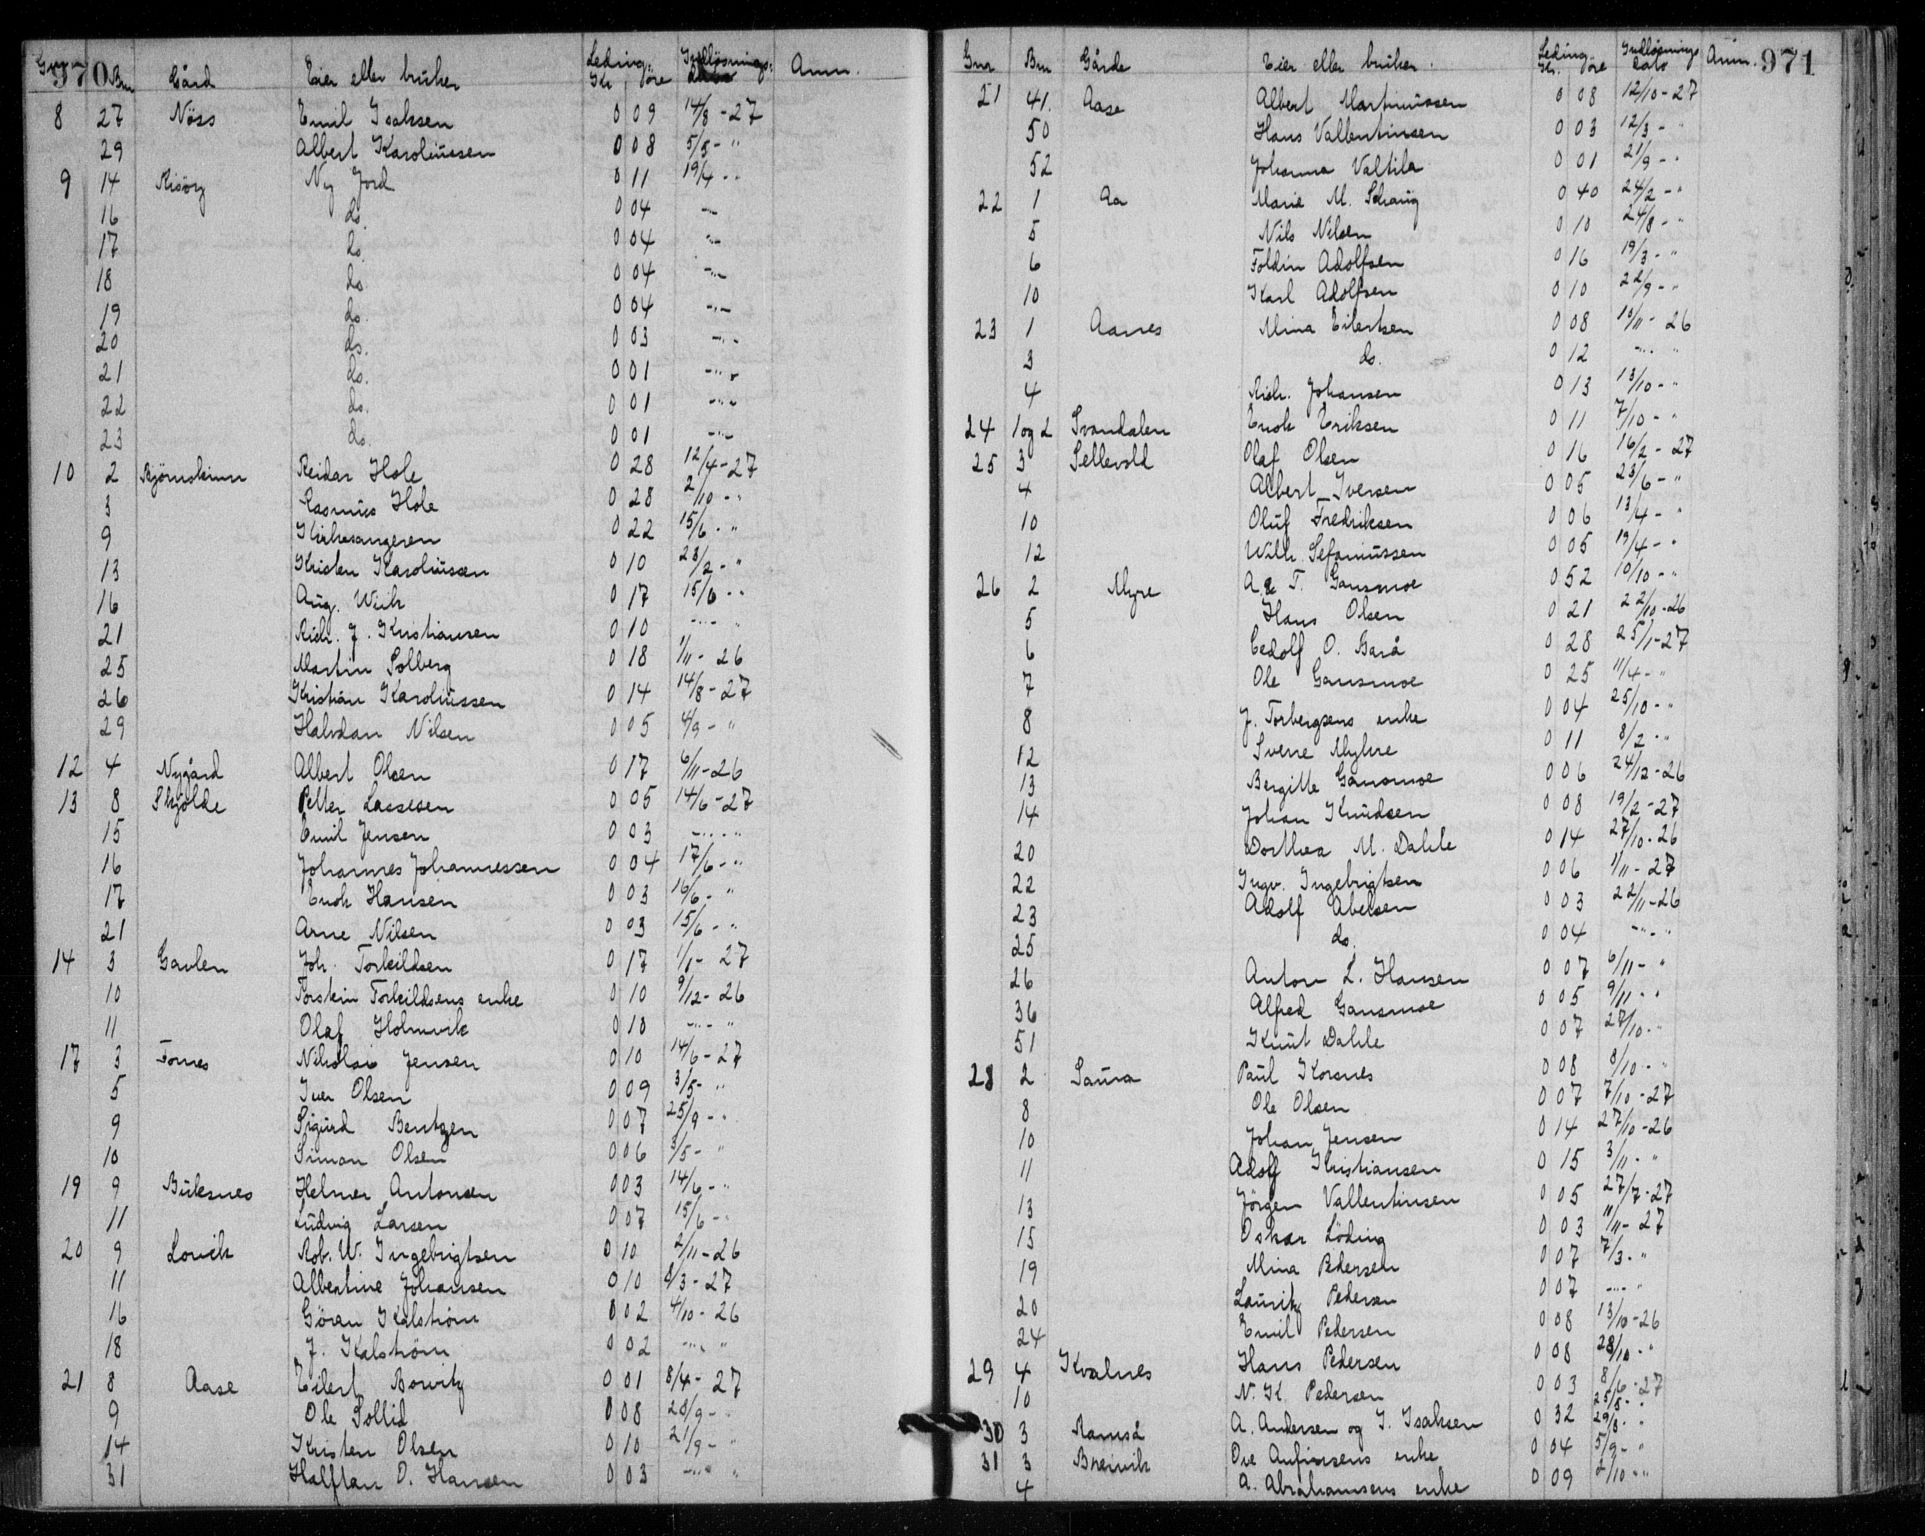 970
Gnr Bn Gård Eier eller bruker Leding Kr. Øre Indløsnings- dato Anm.
8 27 Nöss Emil Isaksen 0 09 14/8 - 27
29 Albert Karoliussen 0 08 5/5 - "
9 14 Risöy Ny Jord 0 11 19/4 - "
16 do. 0 04 -"-
17 do. 0 04 -"-
18 do. 0 04 -"-
19 do. 0 04 -"-
20 do. 0 03 -"-
21 do. 0 01 -"-
22 do. 0 01 -"-
23 do. 0 01 -"-
10 2 Bjørnskinn Reidar Hole 0 28 12/4 - 27
3 Rasmus Hole 0 28 2/10 - "
9 Kirkesangeren 0 22 15/6 - "
13 Kristen Karoliussen 0 10 23/2 - "
16 Aug. Wiik 0 17 15/6 - "
21 Rich. J. Kristiansen 0 10 -"- "
25 Martin Solberg 0 18 1/11 - 26
26 Kristian Karoliussen 0 14 14/8 - 27
29 Halvdan Nilsen 0 05 4/9 - "
12 4 Nygård Albert Olsen 0 17 6/11 - 26
13 8 Skjölde Petter Lassesen 0 05 14/6 - 27
15 Emil Jensen 0 03 -"- "
16 Johannes Johannessen 0 04 17/6 - "
17 Enok Hansen 0 03 16/6 - "
21 Arne Nilsen 0 03 15/6 - "
14 3 Gavlen Joh. Torkildsen 0 17 1/1 - 27
10 Torstein Torkildsens enke 0 10 9/12 - 26
11 Olaf Holmvik 0 10 -"- "
17 3 Fornes Nikolai Jensen 0 10 14/6 - 27
5 Iver Olsen 0 09 3/5 - "
9 Sigurd Bentzen 0 07 25/9 - "
10 Simon Olsen 0 06 3/5 - "
19 9 Buksnes Helmer Antonsen 0 03 14/6 - "
11 Ludvig Larsen 0 07 15/6 - "
20 9 Lovik Rob. W. Ingebrigtsen 0 10 2/11 - 26
11 Albertine Johansen 0 10 8/3 - 27
16 Göran Kalström 0 02 4/10 - 26
18 J. Kalström 0 02 -"- "
21 8 Aase Eilert Borvitz 0 01 8/4 - 27
9 Ole Sollid 0 08 28/9 - "
14 Kristen Olsen 0 10 21/9 - "
31 Halftan O. Hansen 0 03 -"- "
971
Gnr Bn Gårde Eier eller bruker. Leding Kr. Øre Indløsnings dato Anm.
21 41. Aase Albert Martinussen 0 08 12/10 - 27
50 Hans Vallentinsen 0 03 12/3 - "
52 Johanna Valtila 0 01 21/9 - "
22 1 Aa Marie M. Schanig 0 40 24/2 - "
5 Nils Nilsen 0 10 24/8 - "
6 Foldin Adolfsen 0 16 19/3 - "
10 Karl Adolfsen 0 10 22/9 - "
23 1 Aanes Mina Eilertsen 0 08 13/11 - 26
3 do. 0 12 -"- "
4 Rich. Johansen 0 13 13/10 - "
24 1 og 2 Svandalen Enok Eriksen 0 11 7/10 - "
25 3 Sellevold Olaf Olsen 0 16 16/2 - 27
4 Albert Iversen 0 05 23/6 - "
10 Oluf Fredriksen 0 06 13/4 - "
12 Wilh. Sefaniussen 0 05 19/4 - "
26 2 Myre A. & T. Gansmoe 0 52 10/10 - "
5 Hans Olsen 0 21 22/10 - 26
6 Cedolf O. Barå 0 28 25/1 - 27
7 Ole Gansmoe 0 25 11/4 - "
8 J. Torbergsens enke 0 04 25/10 - "
12 Sverre Myhre 0 11 8/2 - "
13 Bergitte Gansmoe 0 06 24/12 - 26
14 Johan Knudsen 0 08 19/2 - 27
20 Dorthea M. Dahle 0 14 27/10 - 26
22 Ingv. Ingebrigtsen 0 06 1/11 - 27
23 Adolf Abelsen 0 03 22/11 - 26
25 do. 0 04 -"- "
26 Anton L. Hansen 0 07 6/11 - "
36 Alfred Gansmoe 0 05 9/11 - "
51 Knut Dahle 0 07 27/10 - "
28 2 Saura Paul Korsnes 0 08 8/10 - "
8 Ole Olsen 0 07 7/10 - 27
10 Johan Jensen 0 14 27/10 - 26
11 Adolf Kristiansen 0 15 3/11 - "
13 Jörgen Vallentinsen 0 05 27/7 - 27
15 Oskar Löding 0 03 11/11 - 27
19 Mina Pedersen 0 07 7/3 - "
20 Lauritz Pedersen 0 07 -"- "
24 Emil Pedersen 0 08 13/10 - 26
29 4 Kvalnes Hans Pedersen 0 08 28/10 - "
10 N. K. Pedersen 0 03 8/6 - 27
30 3 Ramså A. Andersen og J. Isaksen 0 32 25/8 - " 29/8 - "
31 3 Breivik Ove Aufinsens enke 0 04 5/9 - "
4 A. Abrahamsens enke 0 09 2/10 - "